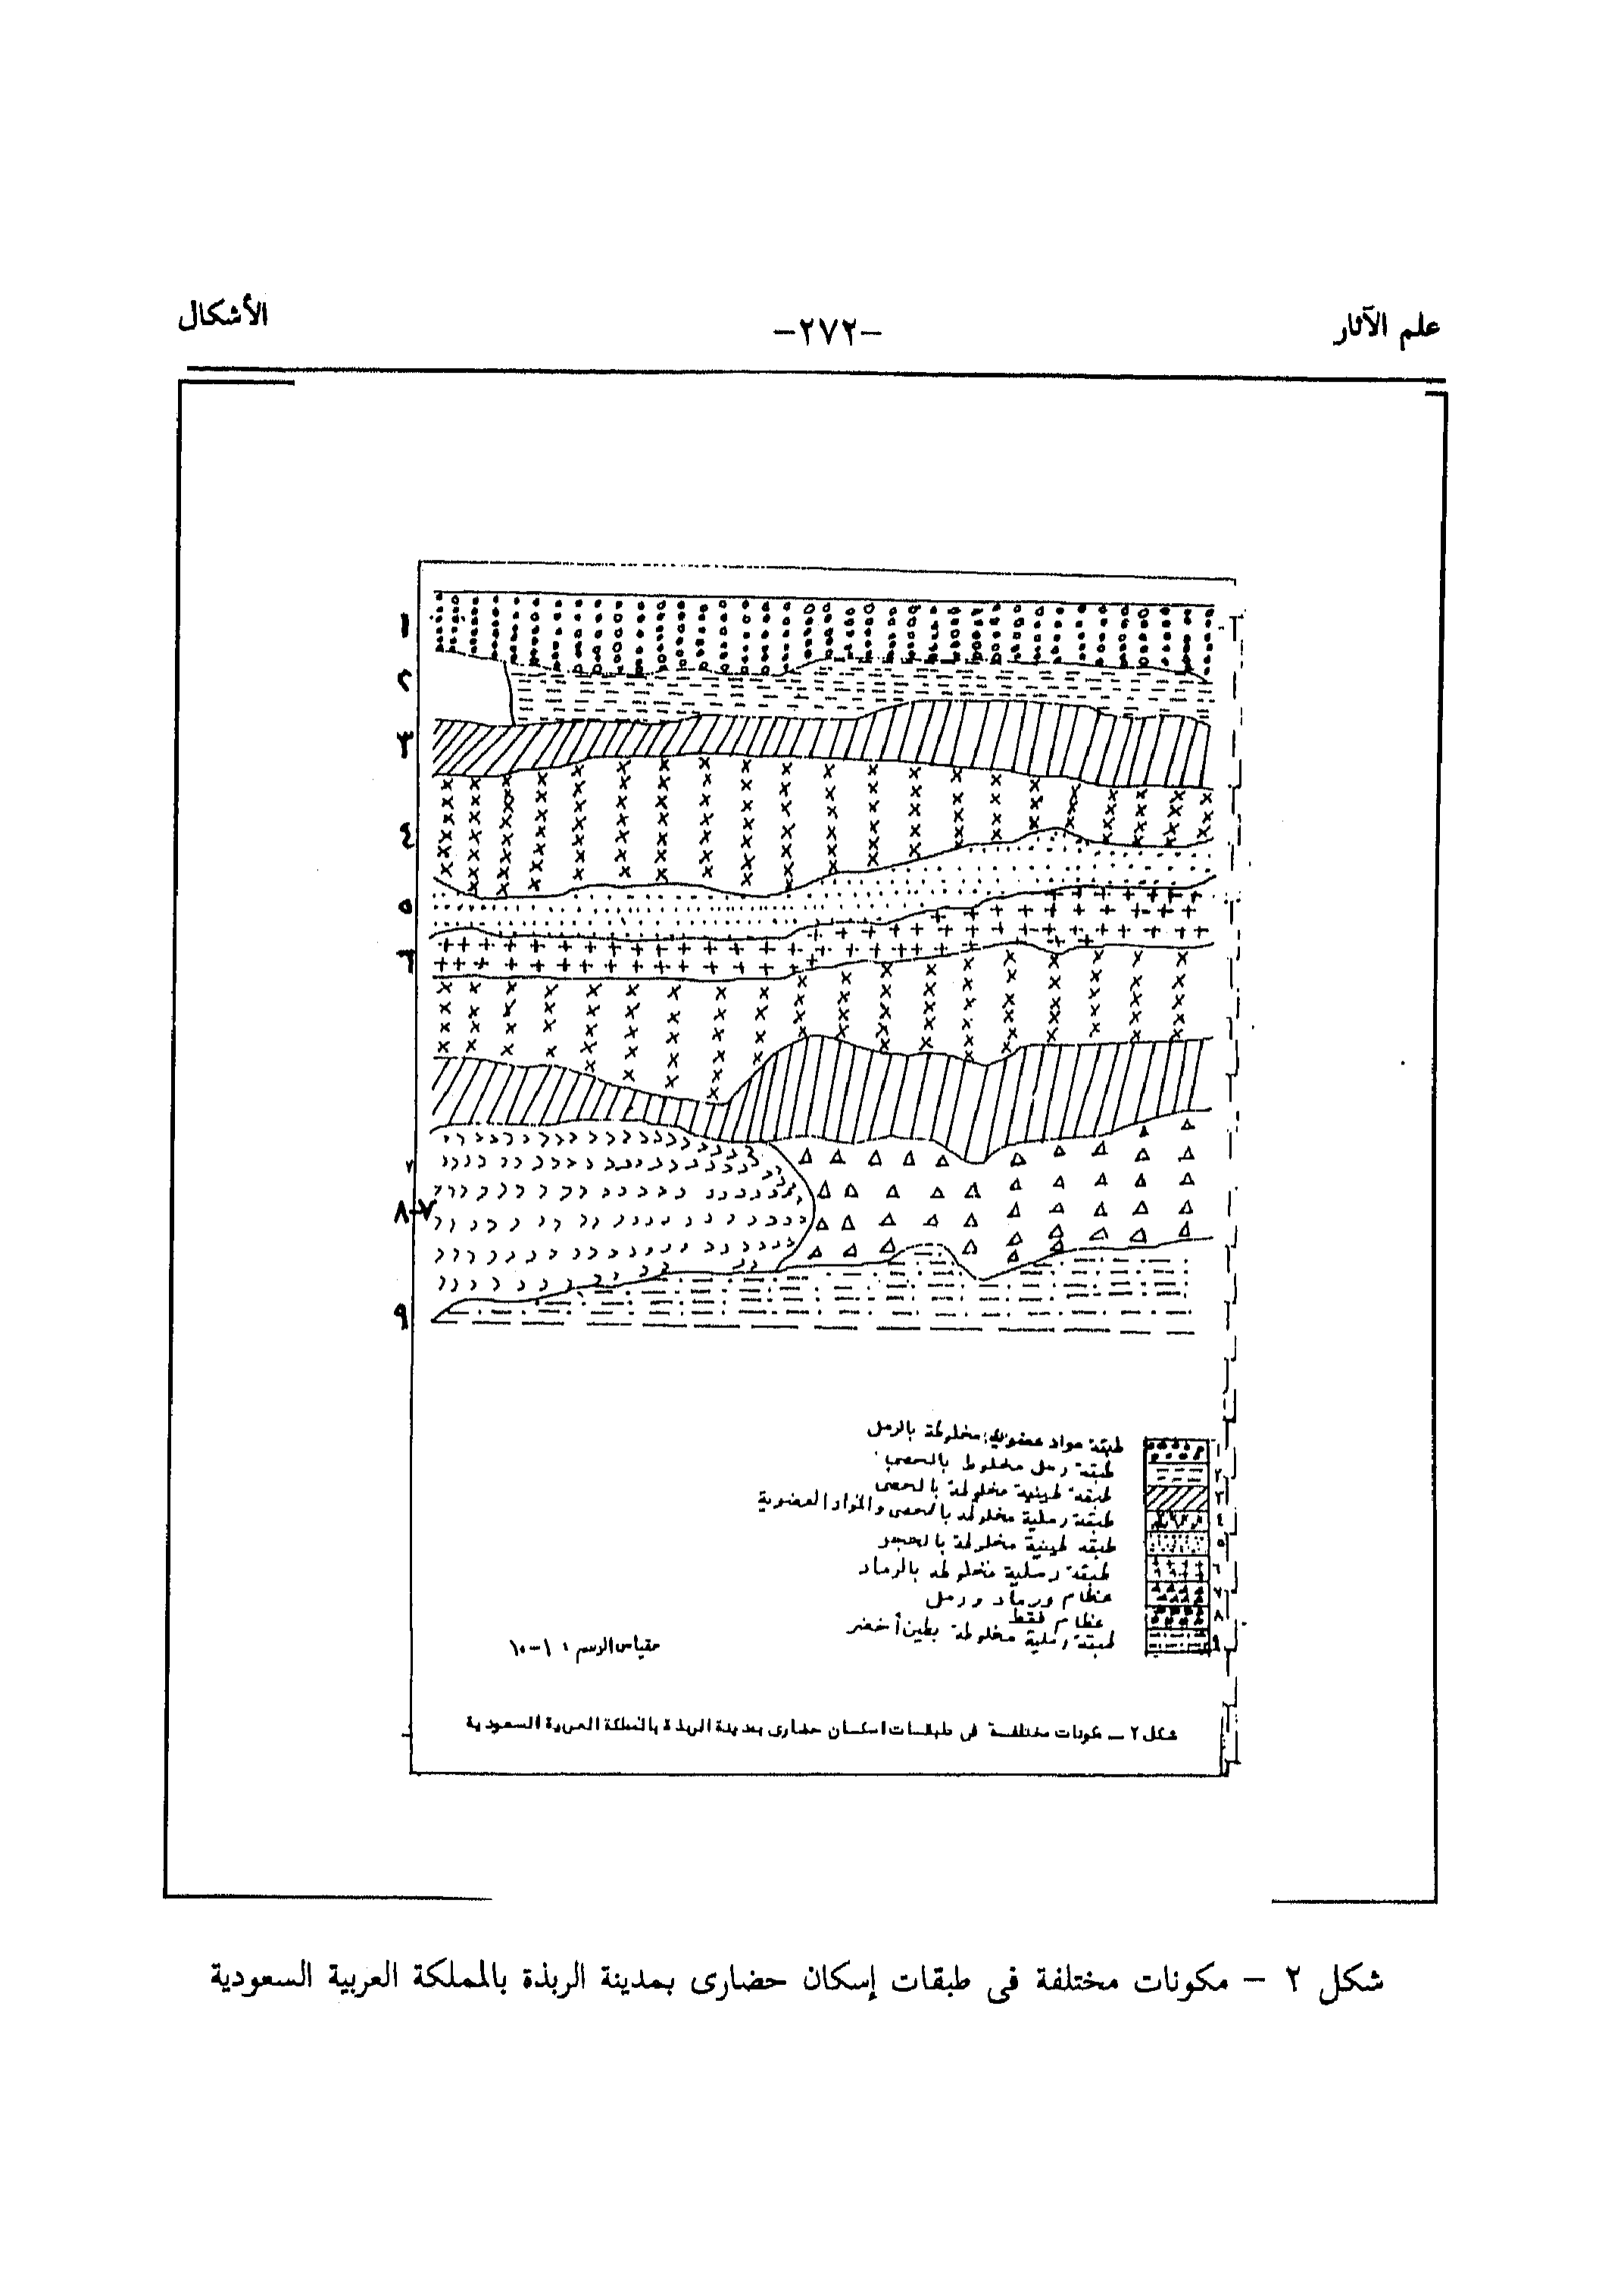 علم الآثار
-٢٧٢-
الأشكال
١
٢
٣
٤
٥
٦
٧
٨-٧
٩
١ طبقة مواد عضوية مخلوطة بالرمل
٢ طبقة رمل مخلوط بالحصى
٣ طبقة طينية مخلوطة بالحصى
٤ طبقة رملية مخلوطة بالحصى والمواد العضوية
٥ طبقة طينية مخلوطة بالحجر
٦ طبقة رملية مخلوطة بالرماد
٧ عظام ورماد ورمل
٨ عظام فقط
٩ طبقة رملية مخلوطة بطين أخضر
مقياس الرسم ١-١٠
شكل ٢ – مكونات مختلفة فى طبقات اسكان حضارى بمدينة الربذة بالمملكة العربية السعودية
شكل ٢ – مكونات مختلفة فى طبقات إسكان حضارى بمدينة الربذة بالمملكة العربية السعودية